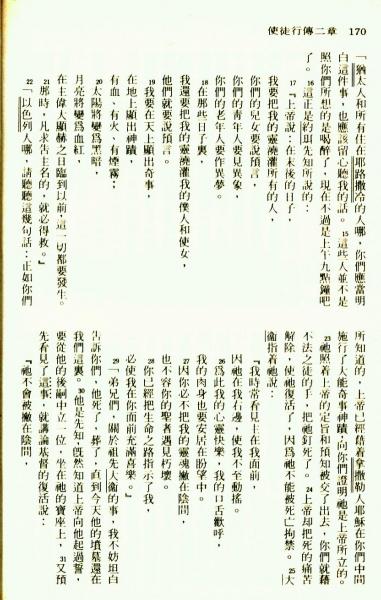 使徒行傳二章　170
「猶太人和所有住在耶路撒冷的人哪，你們應當明
白這件事，也應該留心聽我的話。15這些人並不是
照你們所想的是喝醉了，現在不過是上午九點鐘吧
了。16這正是約珥先知所說的：
17『上帝說：在末後的日子，
我要把我的靈澆灌所有的人，
你們的兒女要說預言，
你們的青年人要見異象，
你們的老年人要作異夢。
18在那些日子裏，
我還要把我的靈澆灌我的僕人和使女，
他們就要說預言。
19我要在天上顯出奇事，
在地上顯出神蹟，
有血、有火、有煙霧；
20太陽將變爲黑暗，
月亮將變爲紅血，
在主偉大顯赫之日臨到以前，這一切都要發生。
21那時，凡求告主名的，就必得救。』
22「以色列人哪，請聽聽這幾句話：正如你們
所知道的，上帝已經藉着拿撒勒人耶穌在你們中間
施行了大能奇事神蹟，向你們證明祂是上帝所立的。
23祂照着上帝的定旨和預知被交了出去，你們就藉
不法之徒的手，把祂釘死了。24上帝却把死的痛苦
解除，使祂復活了，因爲祂不能被死亡拘禁。25大
衞指着祂說：
『我時常看見主在我面前，
因祂在我右邊，使我不至動搖。
26爲此我的心靈快樂，我的口舌歡呼，
我的肉身也要安居在盼望中。
27因你必不把我的靈魂撇在陰間，
也不容你的聖者遇見朽壞。
28你已經把生命之路指示了我，
必使我在你面前充滿喜樂。』
29「弟兄們，關於祖先大衞的事，我不妨坦白
告訴你們，他死了，葬了，直到今天他的墳墓還在
我們這裏。30他是先知，旣然知道上帝向他起過誓，
要從他的後嗣中立一位，坐在祂的寶座上，31又預
先看見了這事，就講論基督的復活說：
『祂不會被撇在陰間，